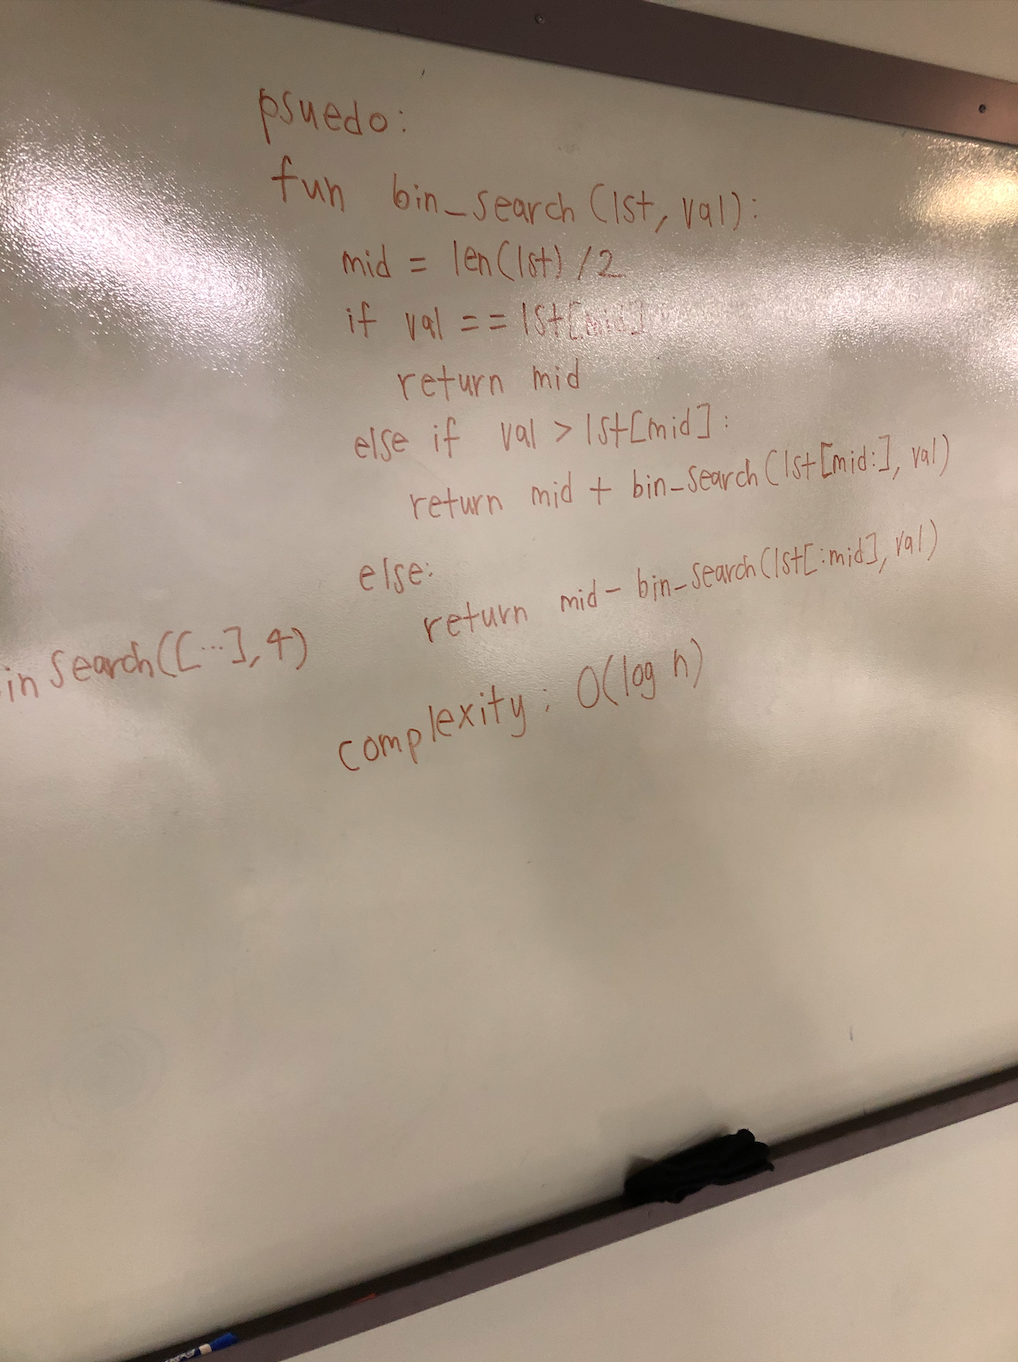 psuedo:
fun bin_search (lst, val):
mid = len(lst) /2
if val == lst[mid]
return mid
else if val > lst[mid]:
return mid + bin_search(lst[mid:], val)
else:
return mid - bin_search(lst[:mid], val)
in search([...], 4)
complexity: O(log n)